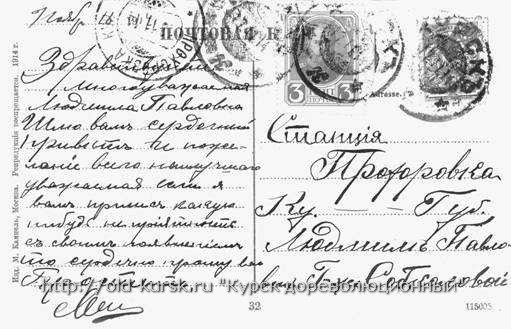 Нояб. 17
ПОЧТОВАЯ К
3
Adresse.
Здравствуйте
многоуважаемая
Людмила Павловна
Шлю вамъ сердечный
привѣтъ и поже-
ланіе всего наилучшаго
уважаемая если я
вамъ принесъ какую
нибудь непріятность
съ своимъ появленіемъ
то сердечно прошу вас
Станція
Прохоровка
Ку. Губ.
Людмилѣ Павло-
внѣ
Изд. М. Кампель, Москва. Репродукція воспрещается. 1914 г.
32
115005
http://old-kursk.ru "Курск дореволюционный"